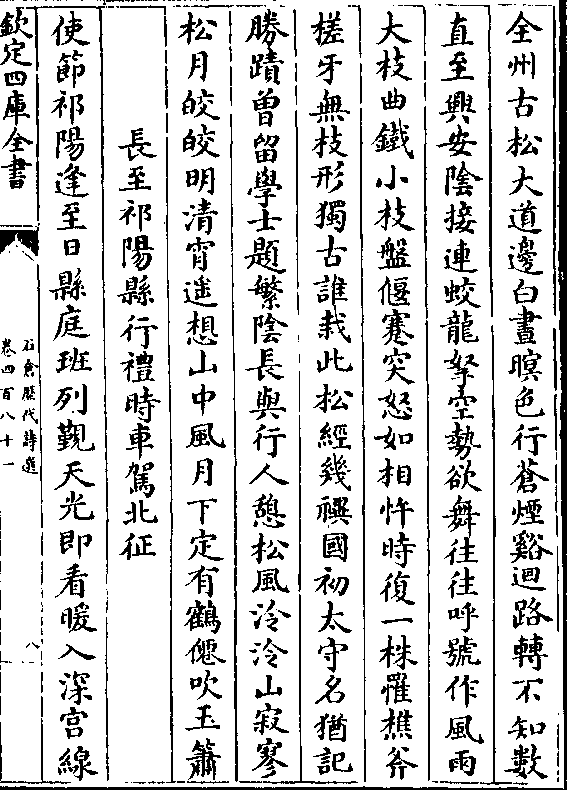 全州古松大道邊白晝暝色行蒼煙谿迴路轉不知數
直至興安陰接連蛟龍拏空勢欲舞往往呼號作風雨
大枝曲鐵小枝盤偃蹇突怒如相忤時復一株罹樵斧
槎牙無枝形獨古誰栽此松經幾禩國初太守名猶記
勝蹟曾留學士題繁陰長與行人憩松風泠泠山寂寥
松月皎皎明清宵遥想山中風月下定有鶴僊吹玉簫
長至祁陽縣行禮時車駕北征
使節祁陽逢至日縣庭班列覲天光即看暖入深宫線
欽定四庫全書
石倉歷代詩選
卷四百八十一
八